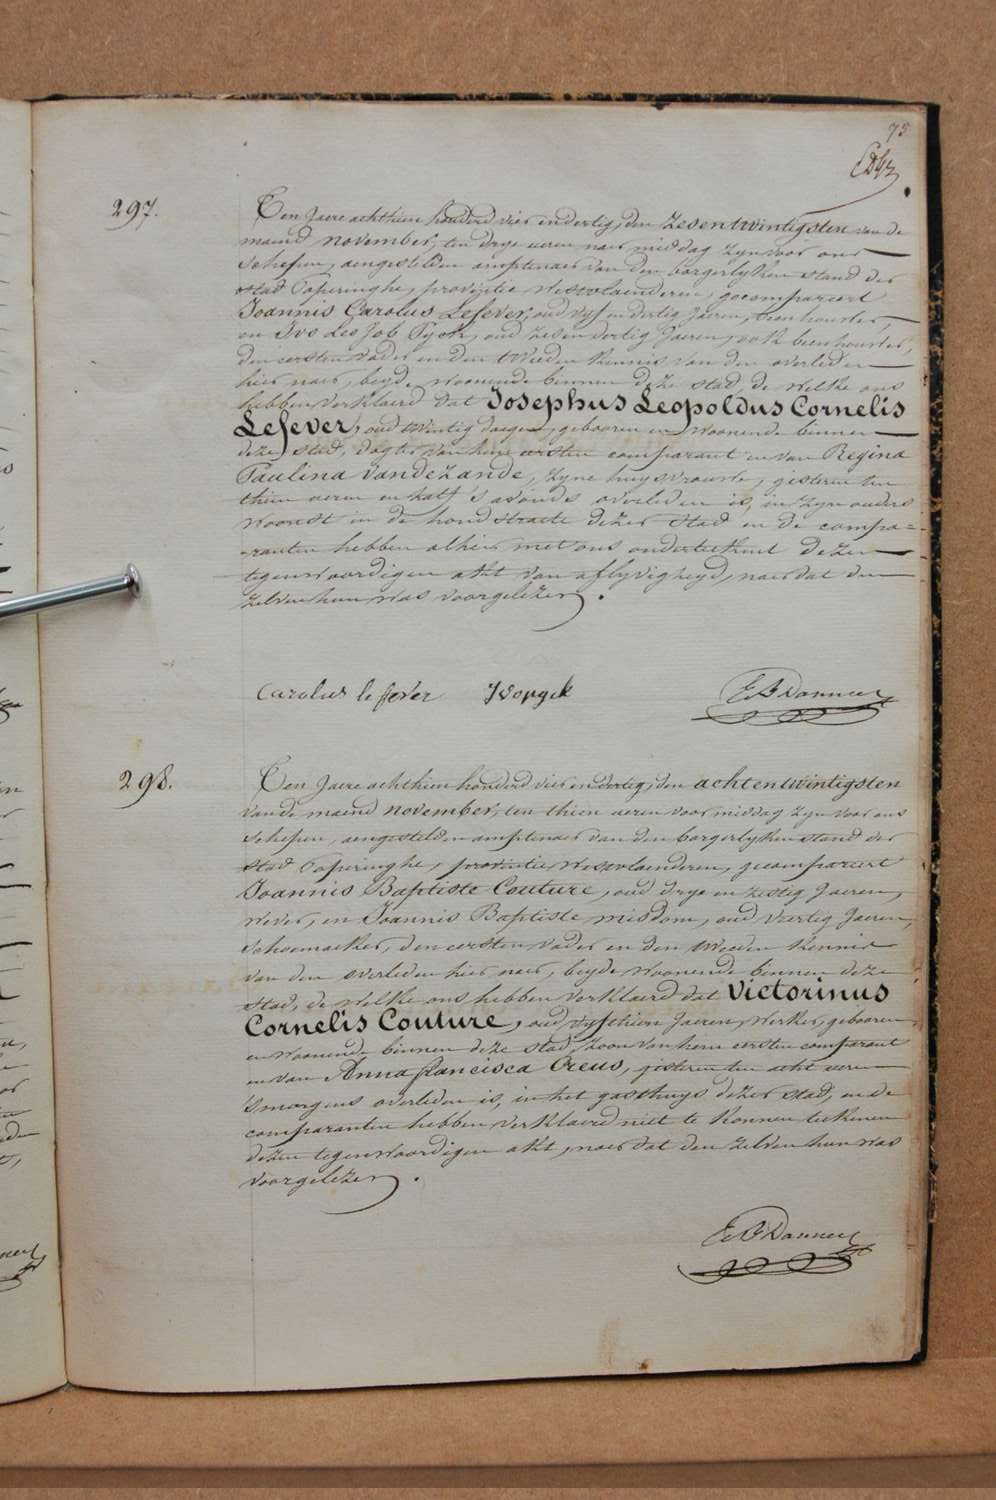 75
297.
Ten Jaere achthien honderd vier en dertig, den zesentwintigsten van de
maend november, ten drye ueren naer middag zyn voor ons
Schepen, aengestelden amptenaer van den borgerlyken stand der
stad Poperinghe, provintie Westvlaenderen, gecompareert
Joannis Carolus Lefever, oud vyf en dertig Jaeren, beenhouwer,
en Ivo Leo Job Pyck, oud zesen dertig Jaeren, ook beenhouwer,
den eersten vader en den tweeden kennis van den overleden
hier naer, beyde woonende binnen deze stad, de welke ons
hebben verklaerd dat Josephus Leopoldus Cornelis
Lefever, oud twintig daegen, gebooren en woonende binnen
deze stad, dogter van hem eersten comparant en van Regina
Paulina Vandezande, zyne huysvrouwe, gisteren ten
thien ueren en half 's avonds overleden is, in zyn ouders
woonst in de hondstraete dezer stad en de compa=
=ranten hebben alhier met ons onderteekent dezen
tegenwoordigen akt van aflyvigheyd, naer dat den
zelven hun was voorgelezen.
Carolus lefever Ivo pyck
298.
Ten Jaere achthien honderd vier en dertig, den achtentwintigsten
van de maend november, ten thien ueren voor middag zyn voor ons
Schepen, aengestelden amptenaer van den borgerlyken stand der
stad Poperinghe, provintie Westvlaenderen, gecompareert
Joannis Baptiste Couture, oud drye en zestig Jaeren,
wever, en Joannis Baptiste misdom, oud veertig Jaeren,
Schoemaeker, den eersten vader en den tweeden kennis
van den overleden hier naer, beyde woonende binnen deze
stad, de welke ons hebben verklaerd dat Victorinus
Cornelis Couture, oud vyfthien Jaeren, werker, gebooren
en woonende binnen deze stad, zoon van hem eersten comparant
en van Anna francisca Creus, gisteren ten acht ueren
'smorgens overleden is, in het gasthuys dezer stad, en de
comparanten hebben verklaerd niet te konnen teekenen
dezen tegenwoordigen akt, naer dat den zelven hun was
voorgelezen.